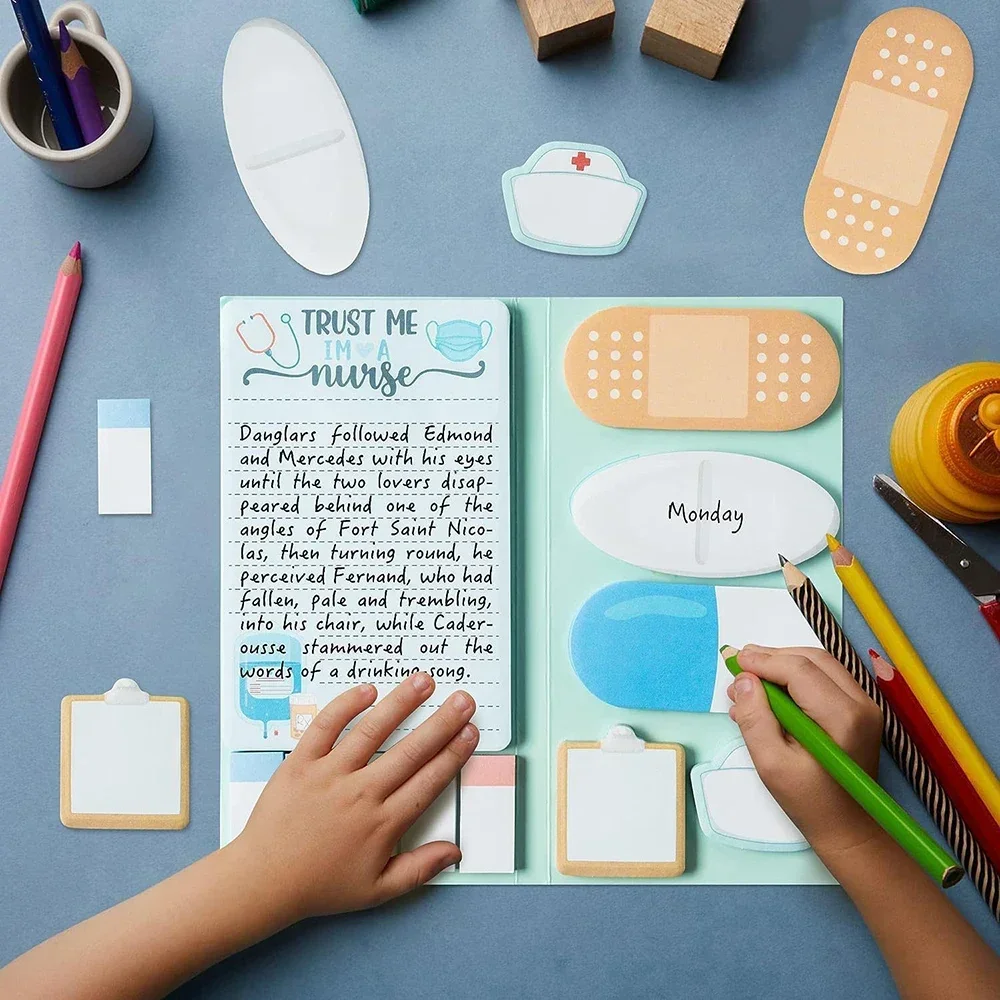 TRUST ME
IM A
nurse
Danglars followed Edmond
and Mercedes with his eyes
until the two lovers disap-
peared behind one of the
angles of Fort Saint Nico-
las, then turning round, he
perceived Fernand, who had
fallen, pale and trembling,
into his chair, while Cader-
ousse stammered out the
words of a drinking song.
Monday